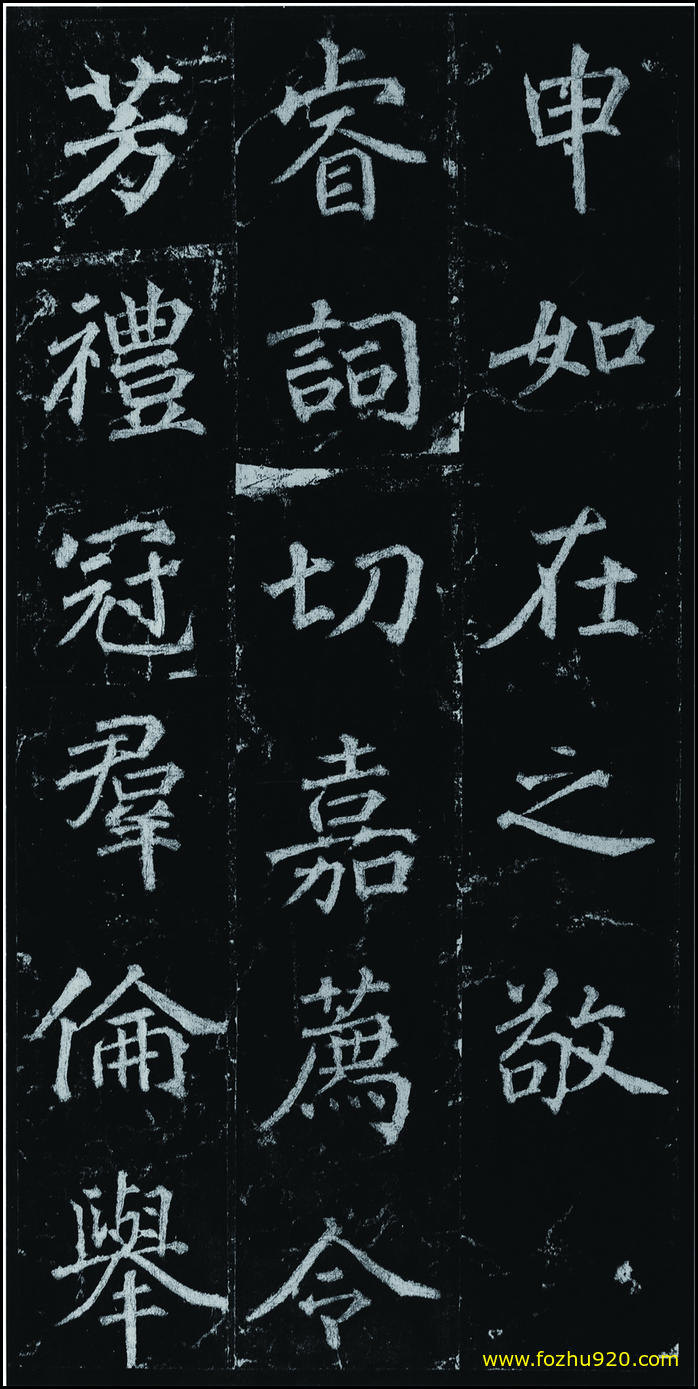 申如在之敬
睿詞切嘉薦令
芳禮冠羣倫舉
www.fozhu920.com